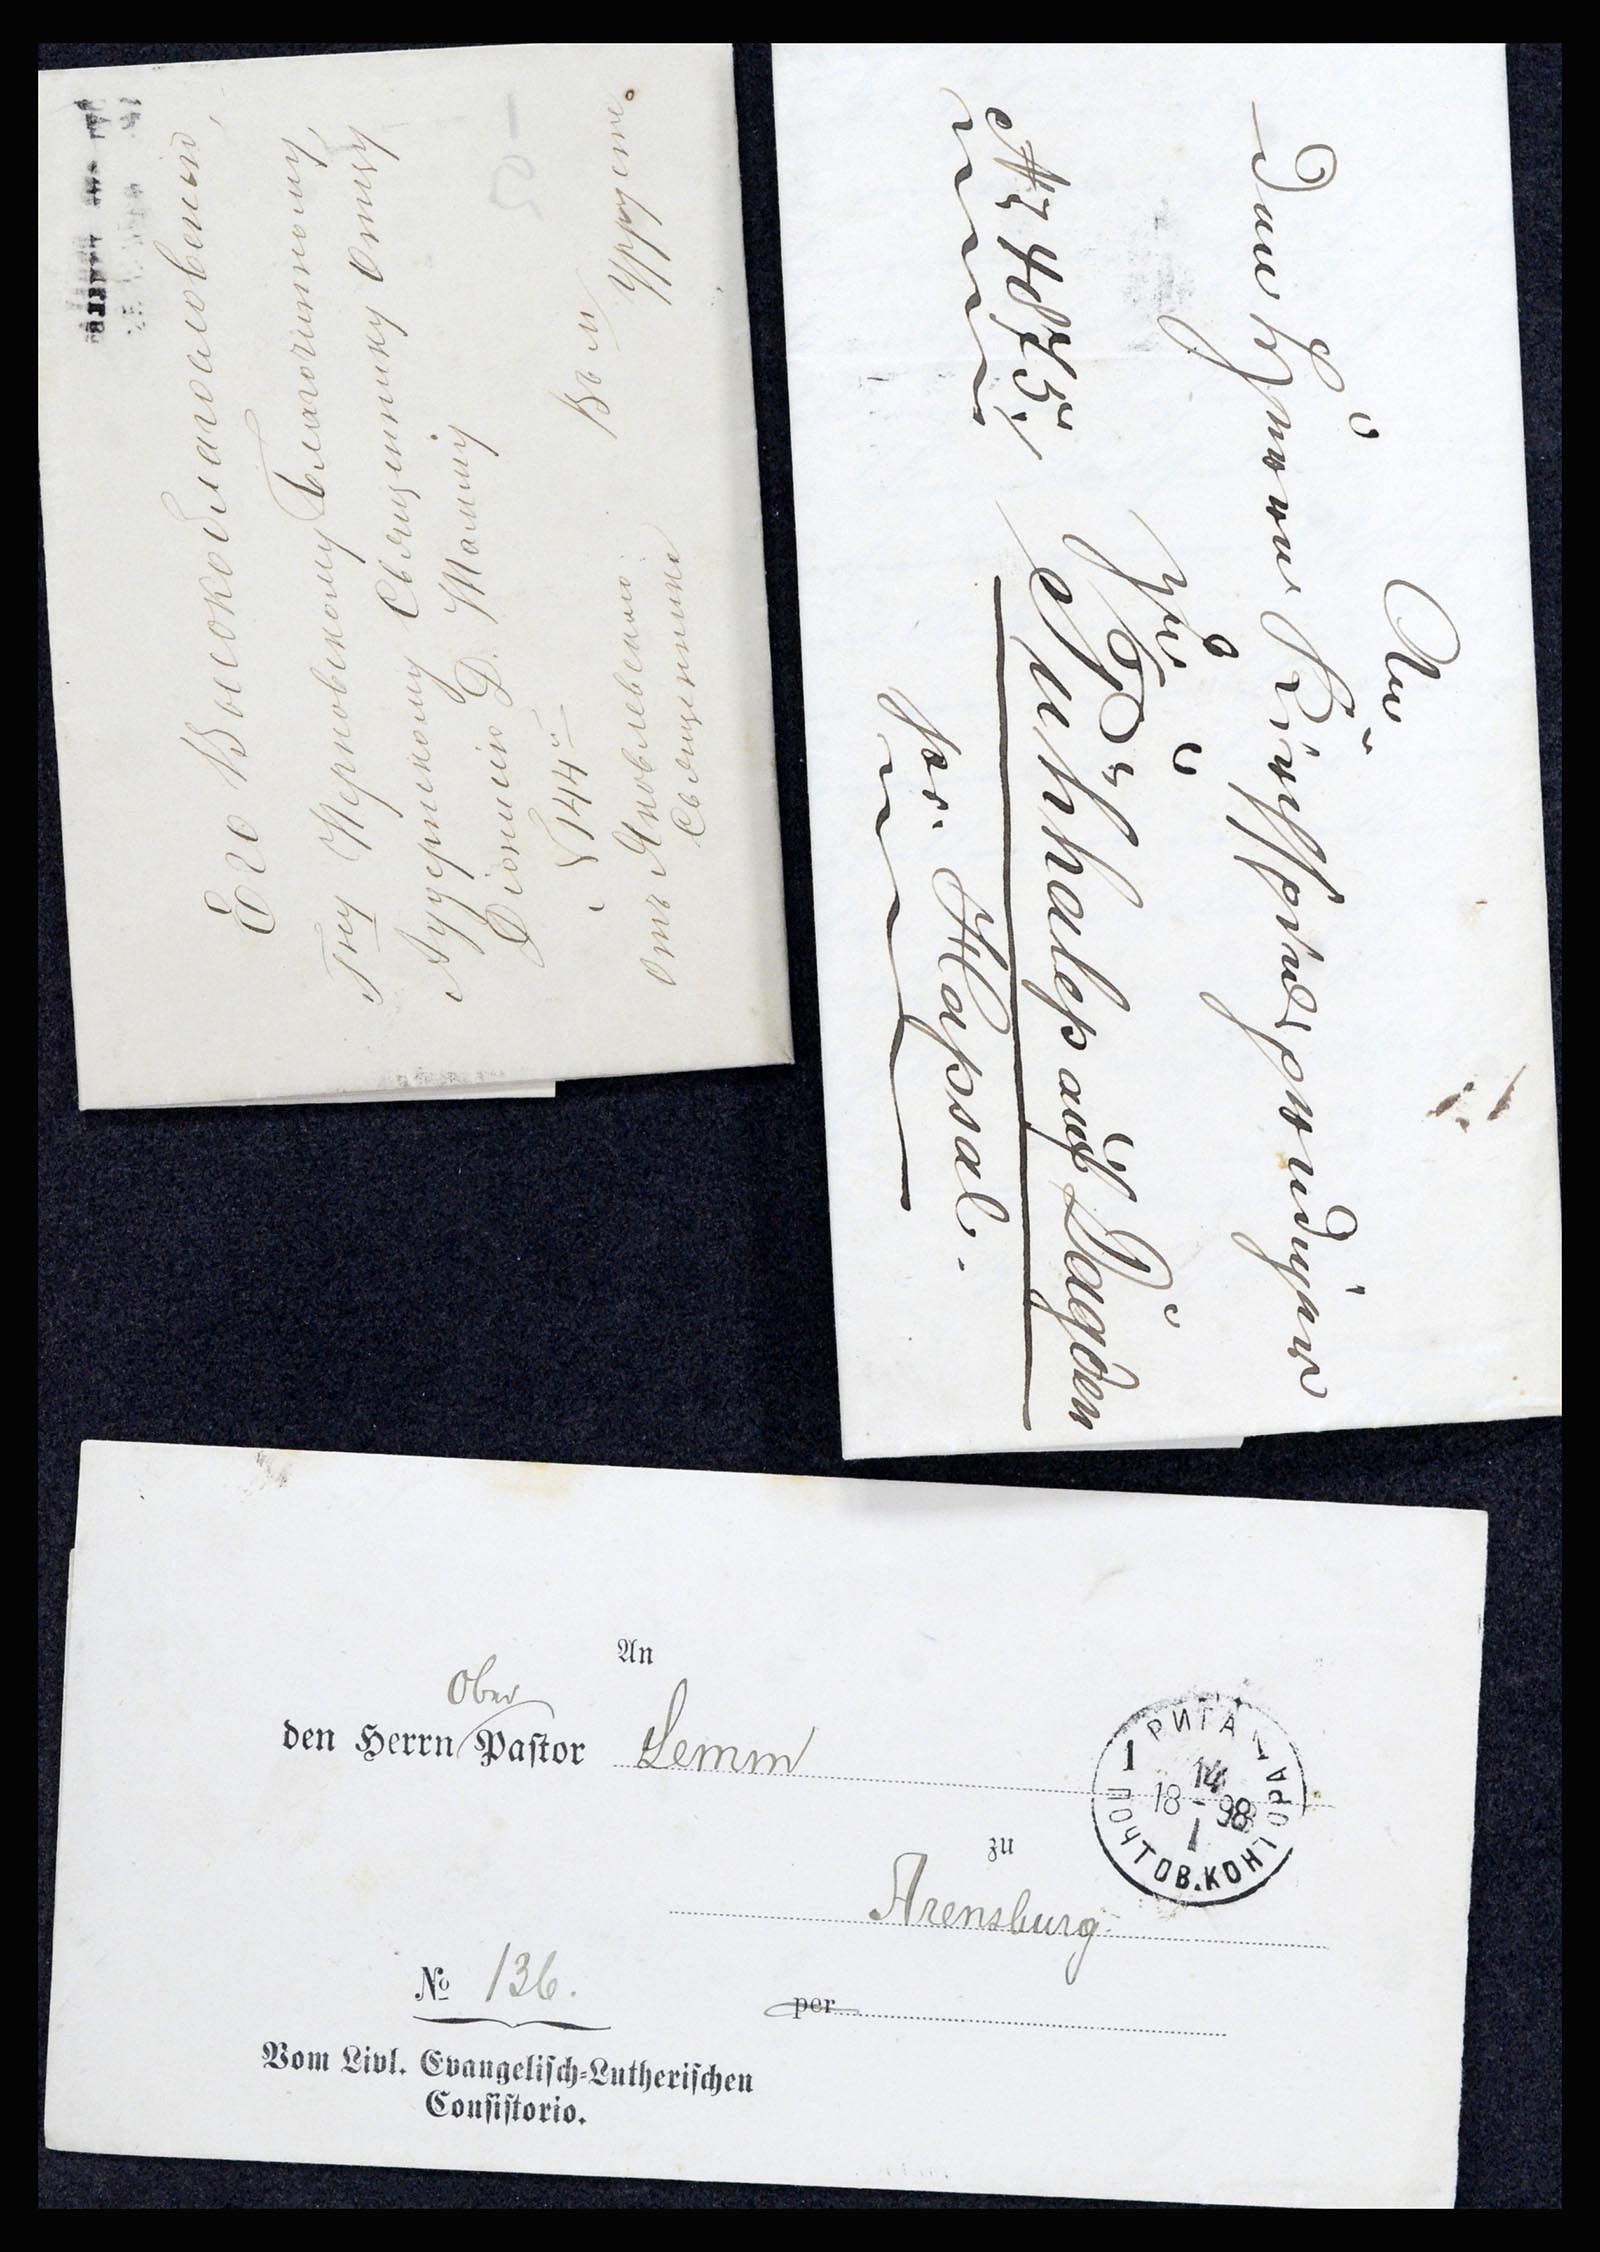 Его Высокоблагословенію,
Гну Перновскому Благочинному,
Аудернскому Священнику Отцу
Діонисію Д. Тамму
№ 144й
Въ м. Уррусте.
отъ Яковлевскаго
Священника
An
den Herrn
zu
Puhhalep auf Dagden
per Hapsal.
An
den Herrn Ober Pastor Lemm
zu
Arensburg
№ 136.
per
Vom Livl. Evangelisch-Lutherischen
Consistorio.
РИГА
1 14 1
18-98
1
ПОЧТОВ. КОНТОРА